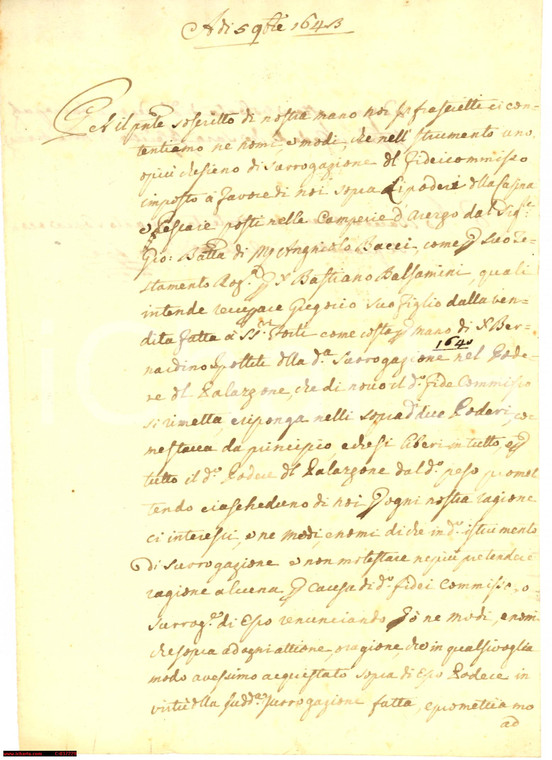 A di 5 9bre 1643
Per il pnte soscritto di nostra mano noi infrascritti ci con-
tentiamo ne nomi, e modi, che nell'istrumento uno,
opiù che sieno di surrogazione del fideicommisso
imposto a favore di noi sopra li poderi della Casina
e Pescaie posti nelle Camperie d'Arezzo dal Sig.r
Gio: Batta di Agnolo Bacci, come per suo te-
stamento Rog.o per S. Bastiano Balsamini, quali
intende recuperare Gregorio suo figlio dalla ven-
dita fatta a come costa per mano di S. Ber-
nardino della d.a surrogazione nel Pode-
1640
re del Palazzone, che di novo il d.o fide Commisso
si rimetta, e riponga nelli soprad.i due Poderi, co-
me stava da principio, e resti libero in tutto, e per
tutto il d.o Podere del Palazzone dal d.o peso promet-
tendo ciascheduno di noi per ogni nostra ragione
ci interessi, e ne modi, e nomi di che in d.o istrumento
di surrogazione e non molestare ne più pretendere
ragione alcuna per causa di d.o fidei Commisso, o
surrog.ne di Esso renunciando per ò ne modi, e nomi
che sopra ad ogni attione, e ragione, che in qualsivoglia
modo avessimo acquistato sopra di Esso Podere in
virtù della sudd.a surrogazione fatta, e promettiamo
ad